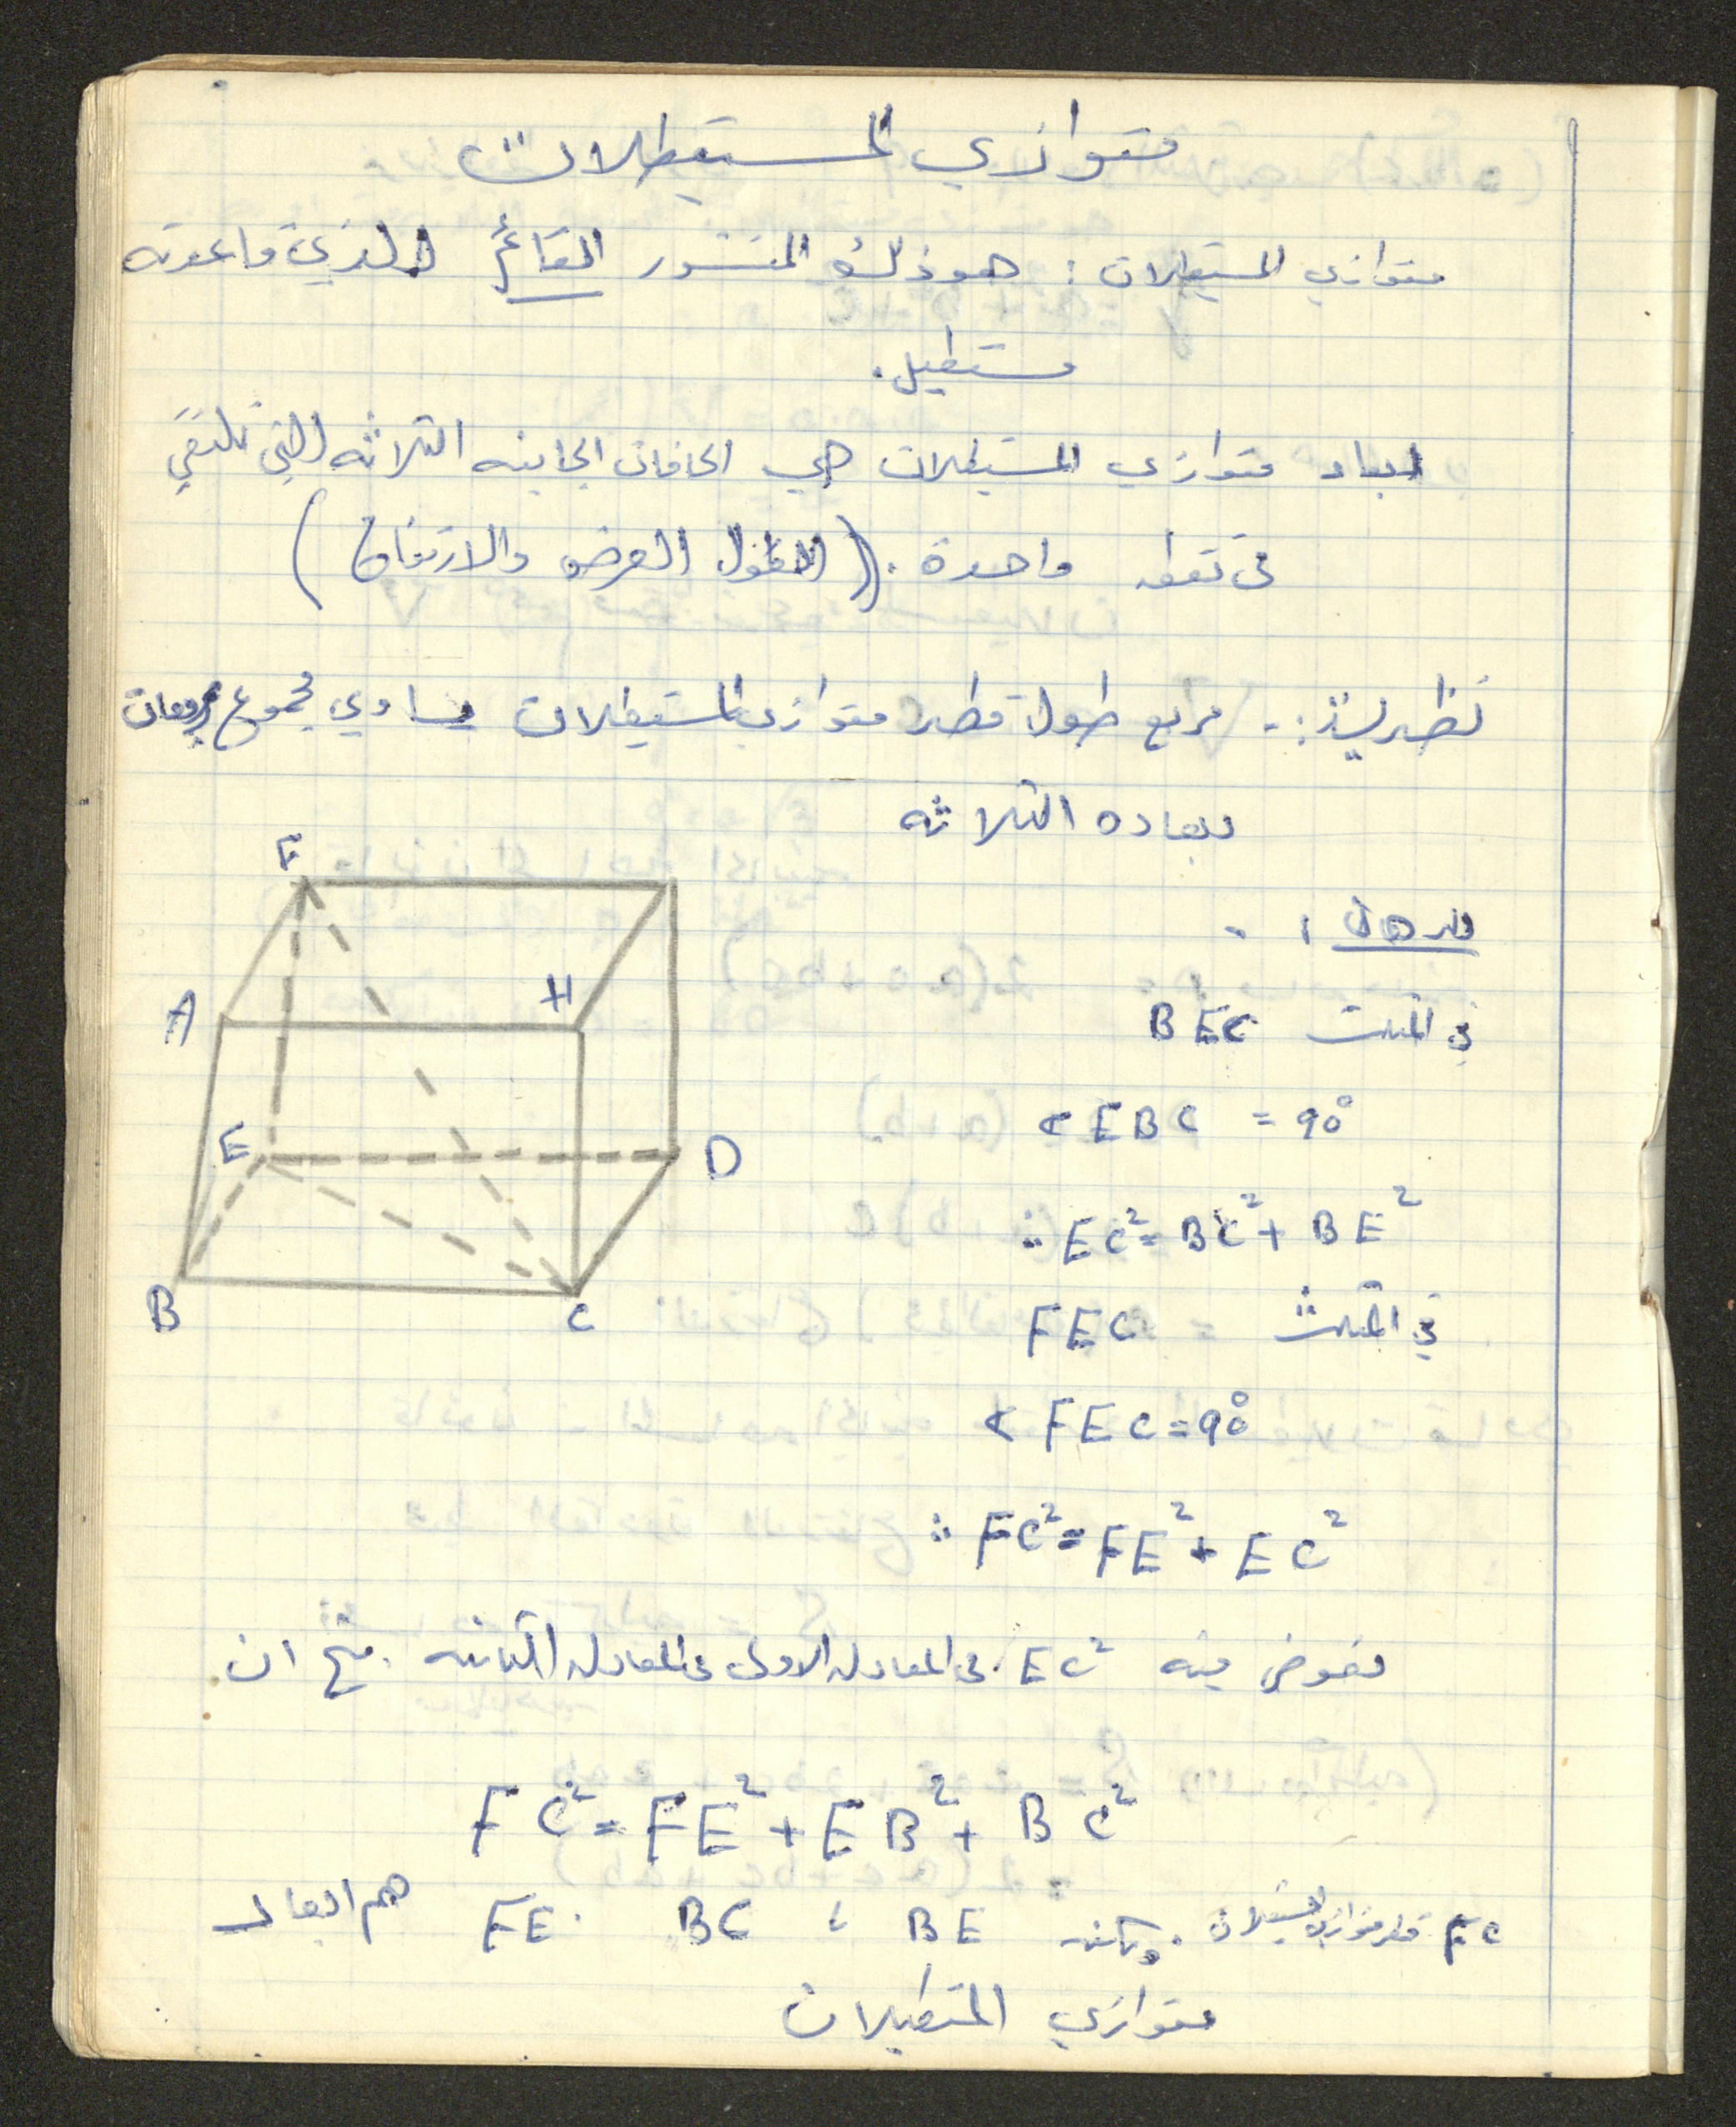 متوازي المستطيلات
متوازي المستطيلات : هو ذلك المنشور القائم الذي قاعدته
مستطيل .
ابعاد متوازي المستطيلات هي الحافات الجانبيه الثلاثه التي تلتقي
في نقطه واحدة . ( الطول العرض والارتفاع )
نظرية :- مربع طول قطر متوازي المستطيلات يساوي مجموع مربعات
ابعاده الثلاثه
برهان : -
F
A
H
E
D
B
C
في المثلث BEC
< EBC = 90°
∴ EC² = BC² + BE²
في المثلث FEC
< FEC = 90°
∴ FC² = FE² + EC²
نعوض EC² في المعادله الاولى في المعادله الثانيه ينتج ان
FC² = FE² + EB² + BC²
FC قطر متوازي المستطيلات . BE ، BC FE هم ابعاد
متوازي المستطيلات